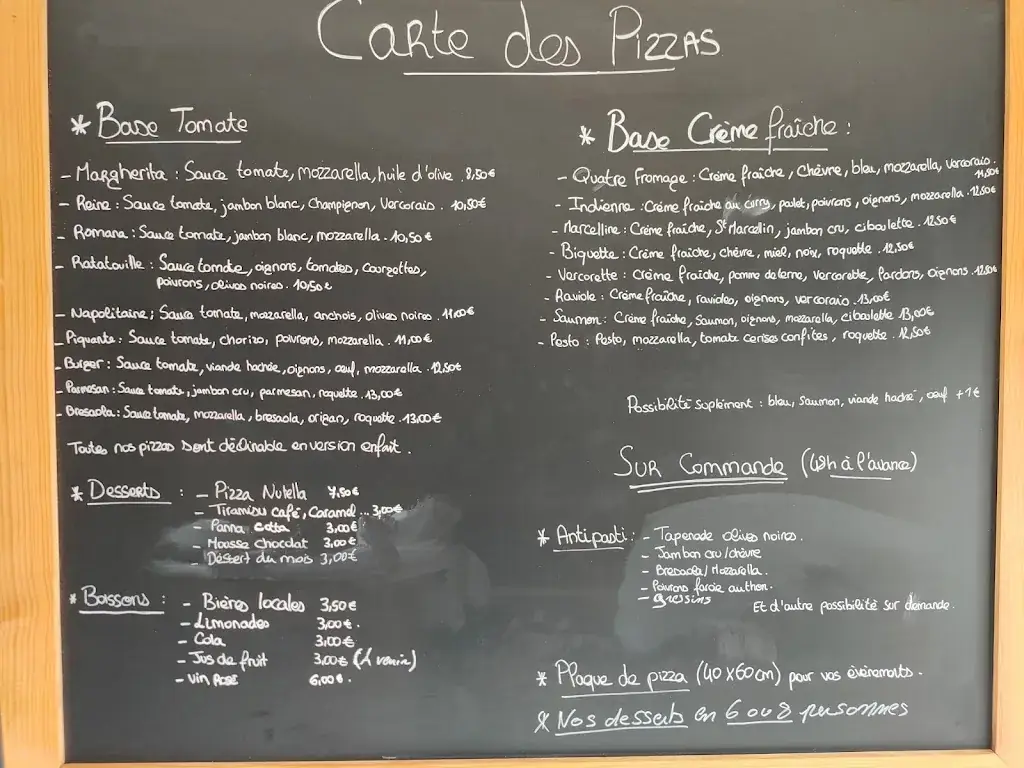 Carte des Pizzas
* Base Tomate
- Margherita : Sauce tomate, mozzarella, huile d'olive . 8,50€
- Reine : Sauce tomate, jambon blanc, champignon, Vercorais . 10,50€
- Romana : Sauce tomate, jambon blanc, mozzarella . 10,50€
- Ratatouille : Sauce tomate, oignons, tomates, courgettes,
poivrons, olives noires . 10,50€
- Napolitaine ; Sauce tomate, mozzarella, anchois, olives noires . 11,00€
- Piquante : Sauce tomate, chorizo, poivrons, mozzarella . 11,00€
- Burger : Sauce tomate, viande hachée, oignons, œuf, mozzarella . 12,50€
- Parmesan : Sauce tomate, jambon cru, parmesan, roquette . 13,00€
- Bresaola : Sauce tomate, mozzarella, bresaola, origan, roquette . 13,00€
Toutes nos pizzas sont déclinable en version enfant .
* Desserts : - Pizza Nutella 7,50€
- Tiramisu café, Caramel ... 3,00€
- Panna cotta 3,00€
- Mousse chocolat 3,00€
- Dessert du mois 3,00€
* Boissons : - Bières locales 3,50€
- Limonades 3,00€ .
- Cola 3,00€
- Jus de fruit 3,00€
- Vin Rosé 6,00€ .
* Base Crème fraîche :
- Quatre Fromage : Crème fraîche, Chèvre, bleu, mozzarella, Vercorais .
11,50€
- Indienne : Crème fraîche au curry, poulet, poivrons, oignons, mozzarella . 12.50€
- Marcelline : Crème fraîche, St Marcellin, jambon cru, ciboulette . 12.50€
- Biquette : Crème fraîche, chèvre, miel, noix, roquette . 12.50€
- Vercorette : Crème fraîche, pomme de terre, Vercorette, lardons, oignons . 12.50€
- Raviole : Crème fraîche, ravioles, oignons, vercorais . 13,00€
- Saumon : Crème fraîche, Saumon, oignons, mozzarella, ciboulette 13,00€
- Pesto : Pesto, mozzarella, tomate cerises confites, roquette . 12,50€
Possibilité suplément : bleu, Saumon, viande haché, oeuf +1€
Sur Commande (48h à l'avance)
* Antipasti : - Tapenade olives noires .
- Jambon cru/chèvre
- Bresaola/Mozzarella .
- Poivrons farcie au thon .
- gressins
Et d'autre possibilité sur demande .
* Plaque de pizza (40x60cm) pour vos évènements .
* Nos desserts en 6 ou 8 personnes